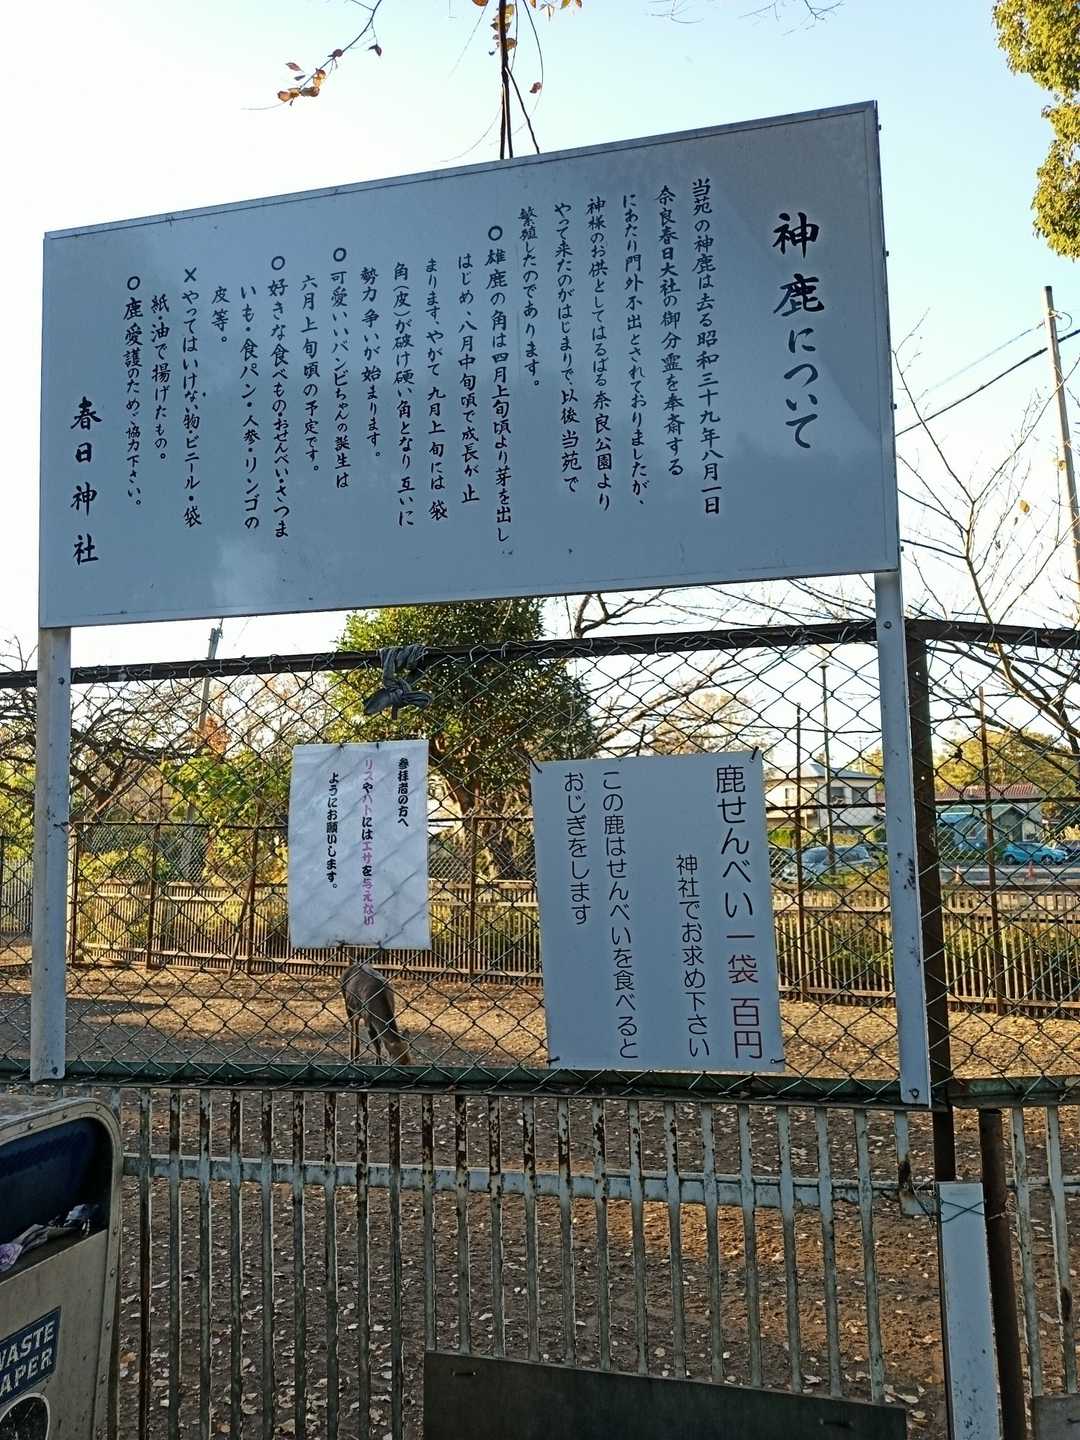 神鹿について
当苑の神鹿は去る昭和三十九年八月一日
奈良春日大社の御分霊を奉斎する
にあたり門外不出とされておりましたが、
神様のお供としてはるばる奈良公園より
やって来たのがはじまりで、以後当苑で
繁殖したのであります。
○雄鹿の角は四月上旬頃より芽を出し
はじめ、八月中旬頃で成長が止
まります、やがて九月上旬には袋
角(皮)が破け硬い角となり互いに
勢力争いが始まります。
○可愛いいバンビちゃんの誕生は
六月上旬頃の予定です。
○好きな食べもの・おせんべい・さつま
いも・食パン・人参・リンゴの
皮等。
×やってはいけない物・ビニール・袋
紙・油で揚げたもの。
○鹿愛護のためご協力下さい。
春日神社
鹿せんべい一袋百円
神社でお求め下さい
この鹿はせんべいを食べると
おじぎをします
参拝者の方へ
リスやハトにはエサを与えない
ようにお願いします。
WASTE
PAPER